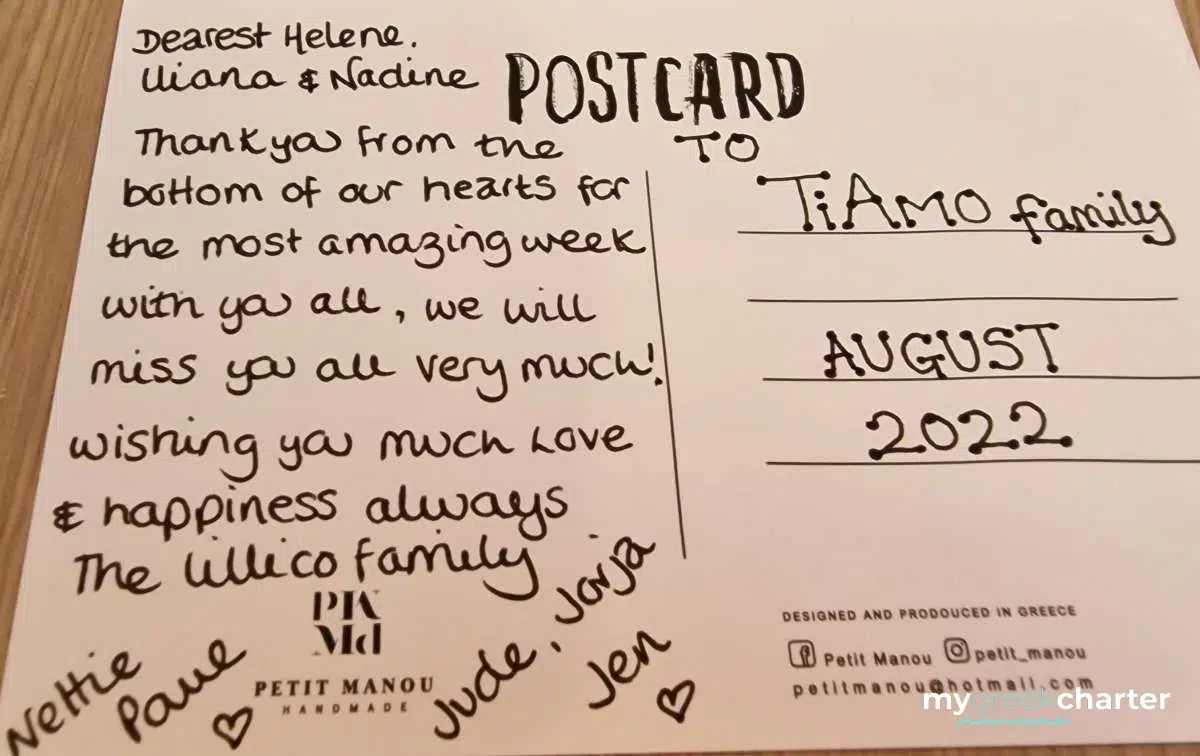 Dearest Helene.
Iliana & Nadine
POSTCARD
Thank you from the
bottom of our hearts for
the most amazing week
with you all, we will
miss you all very much!
wishing you much Love
& happiness always
The Lillico family
Nettie
Paul
Jude, Jorja
Jen
PETIT MANOU
HANDMADE
TO
TiAMO family
AUGUST
2022
DESIGNED AND PRODOUCED IN GREECE
Petit Manou petit_manou
petitmanou@hotmail.com
mygreekcharter